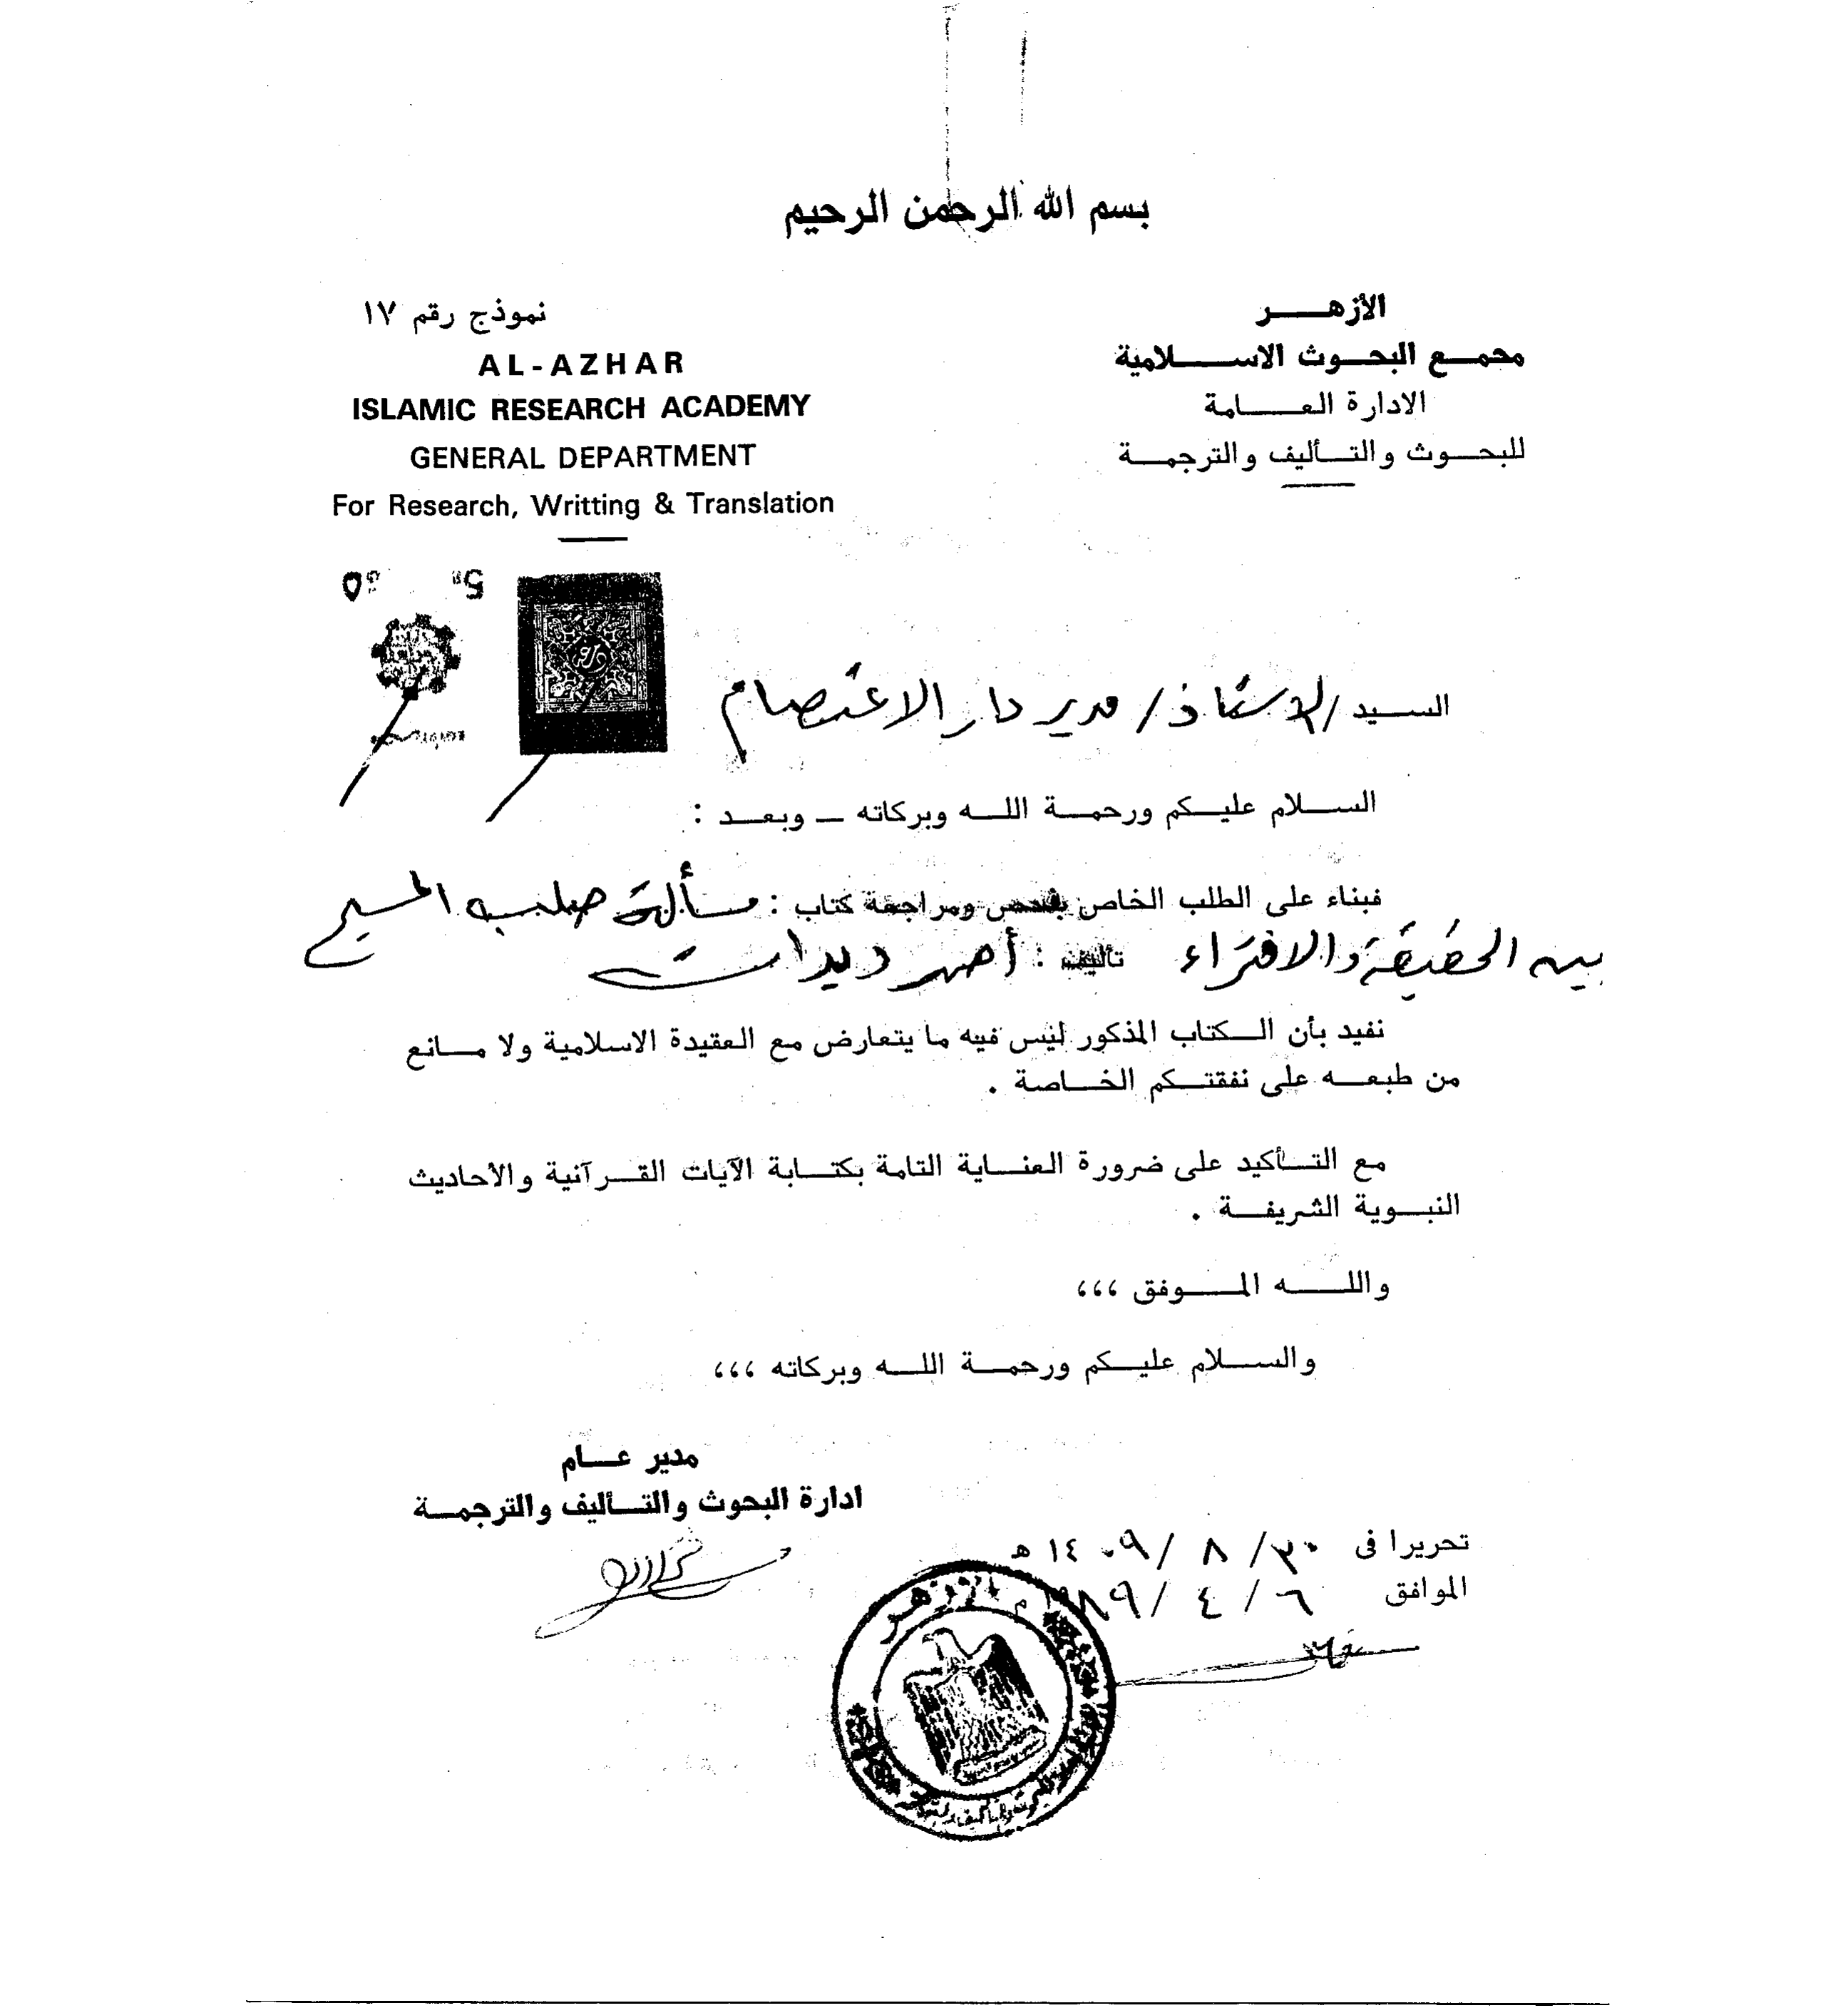 بسم الله الرحمن الرحيم
الأزهر
مجمع البحوث الاسلامية
الادارة العامة
للبحوث والتأليف والترجمة
نموذج رقم ١٧
AL-AZHAR
ISLAMIC RESEARCH ACADEMY
GENERAL DEPARTMENT
For Research, Writting & Translation
السيد / الاستاذ / مدير دار الاعتصام
السلام عليكم ورحمة الله وبركاته – وبعد :
فبناء على الطلب الخاص بفحص ومراجعة كتاب : مسألة صلب المسيح
بين الحقيقة والافتراء تأليف : أحمد ديدات
نفيد بأن الكتاب المذكور ليس فيه ما يتعارض مع العقيدة الاسلامية ولا مانع
من طبعه على نفقتكم الخاصة .
مع التأكيد على ضرورة العناية التامة بكتابة الآيات القرآنية والاحاديث
النبوية الشريفة .
والله الموفق ،،،
والسلام عليكم ورحمة الله وبركاته ،،،
مدير عام
ادارة البحوث والتأليف والترجمة
تحريرا فى ٣٠ / ٨ / ١٤٠٩ ه
الموافق ٦ / ٤ / ١٩٨٩ م
الأزهر